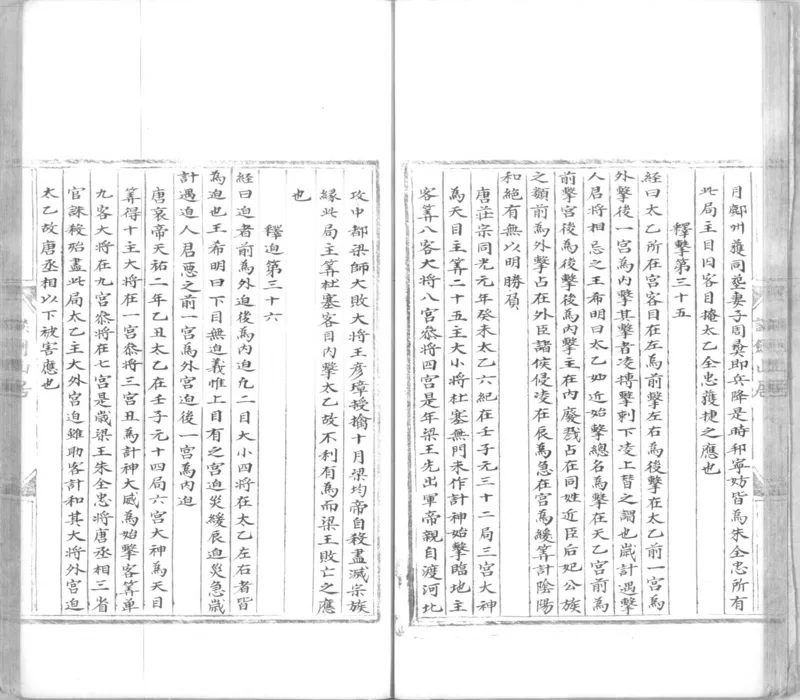 月鄜州獲同堊妻子周彝即兵降是時邠寧妨皆為朱全忠所有
此局主目囚客目掩太乙全忠獲捷之應也
釋擊第三十五
經曰太乙所在宮客目在左為前擊左右為後擊在太乙前一宮為
外擊後一宮為內擊其擊者凌搏擊刺下凌上僣之謂也歲計遇擊
人君將相忌之王希明曰太乙如近始擊總名為擊在天乙宮前為
前擊宮後為後擊後為內擊主在內廢戮占在同姓近臣后妃公族
之類前為外擊占在外臣諸侯侵凌在辰為急在宮為緩筭計陰陽
和絕有無以明勝負
唐莊宗同光元年癸未太乙六紀在壬子元三十二局三宮大神
為天目主筭二十五主大小將杜塞無門未作計神始擊臨地主
客筭八客大將八宮叅將四宮是年梁王先出軍帝親自渡河北
攻中都梁師大敗大將王彥璋授擒十月梁均帝自殺盡滅宗族
緣此局主筭杜塞客目內擊太乙故不利有為而梁王敗亡之應
也
釋迫第三十六
經曰迫者前為外迫後為內迫九二目大小四將在太乙左右者皆
為迫也王希明曰下目無迫義惟上目有之宮迫災緩辰迫災急歲
計遇迫人君惡之前一宮為外宮迫後一宮為內迫
唐哀帝天祐二年乙丑太乙在壬子元十四局六宮大神為天目
筭得十主大將在一宮叅將三宮丑為計神大威為始擊客筭單
九客大將在九宮叅將在七宮是歲梁王朱全忠將唐丞相三省
官誅殺殆盡此局太乙主大外宮迫雖助客計和其大將外宮迫
太乙故唐丞相以下被害應也